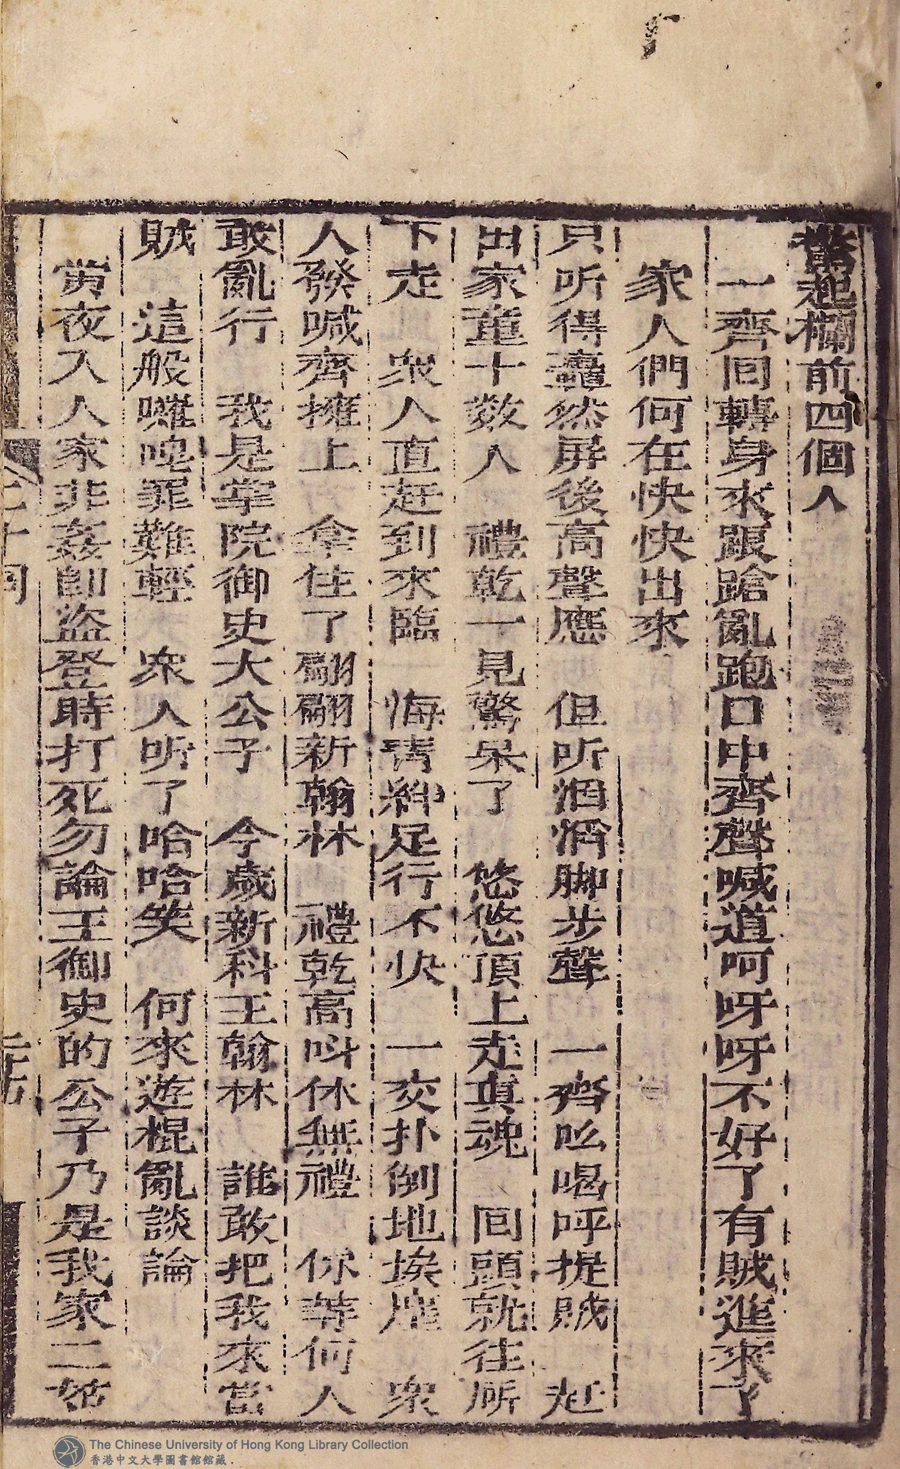 驚起欄前四個人
一齊回轉身來踉蹌亂跑口中齊聲喊道呵呀呀不好了有賊進來了
家人們何在快快出來
只听得轟然屏後高聲應　但听滔滔脚步聲　一齊吆喝呼捉賊　赶
出家童十数人　禮乾一見驚呆了　悠悠頂上走真魂　回頭就往所
下走　衆人直赶到來臨　海青絆足行不快　一交扑倒地埃塵　衆
人發喊齊擁上　拿住了翩翩新翰林　禮乾高呌休無禮　你等何人
敢亂行　我是掌院御史大公子　今歲新科王翰林　誰敢把我來當
賊　這般囉唣罪難輕　衆人听了哈哈笑　何來遊棍亂談論
黄夜入人家非姦即盗登時打死勿論王御史的公子乃是我家二姑
十回
The Chinese University of Hong Kong Library Collection
香港中文大學圖書館館藏.